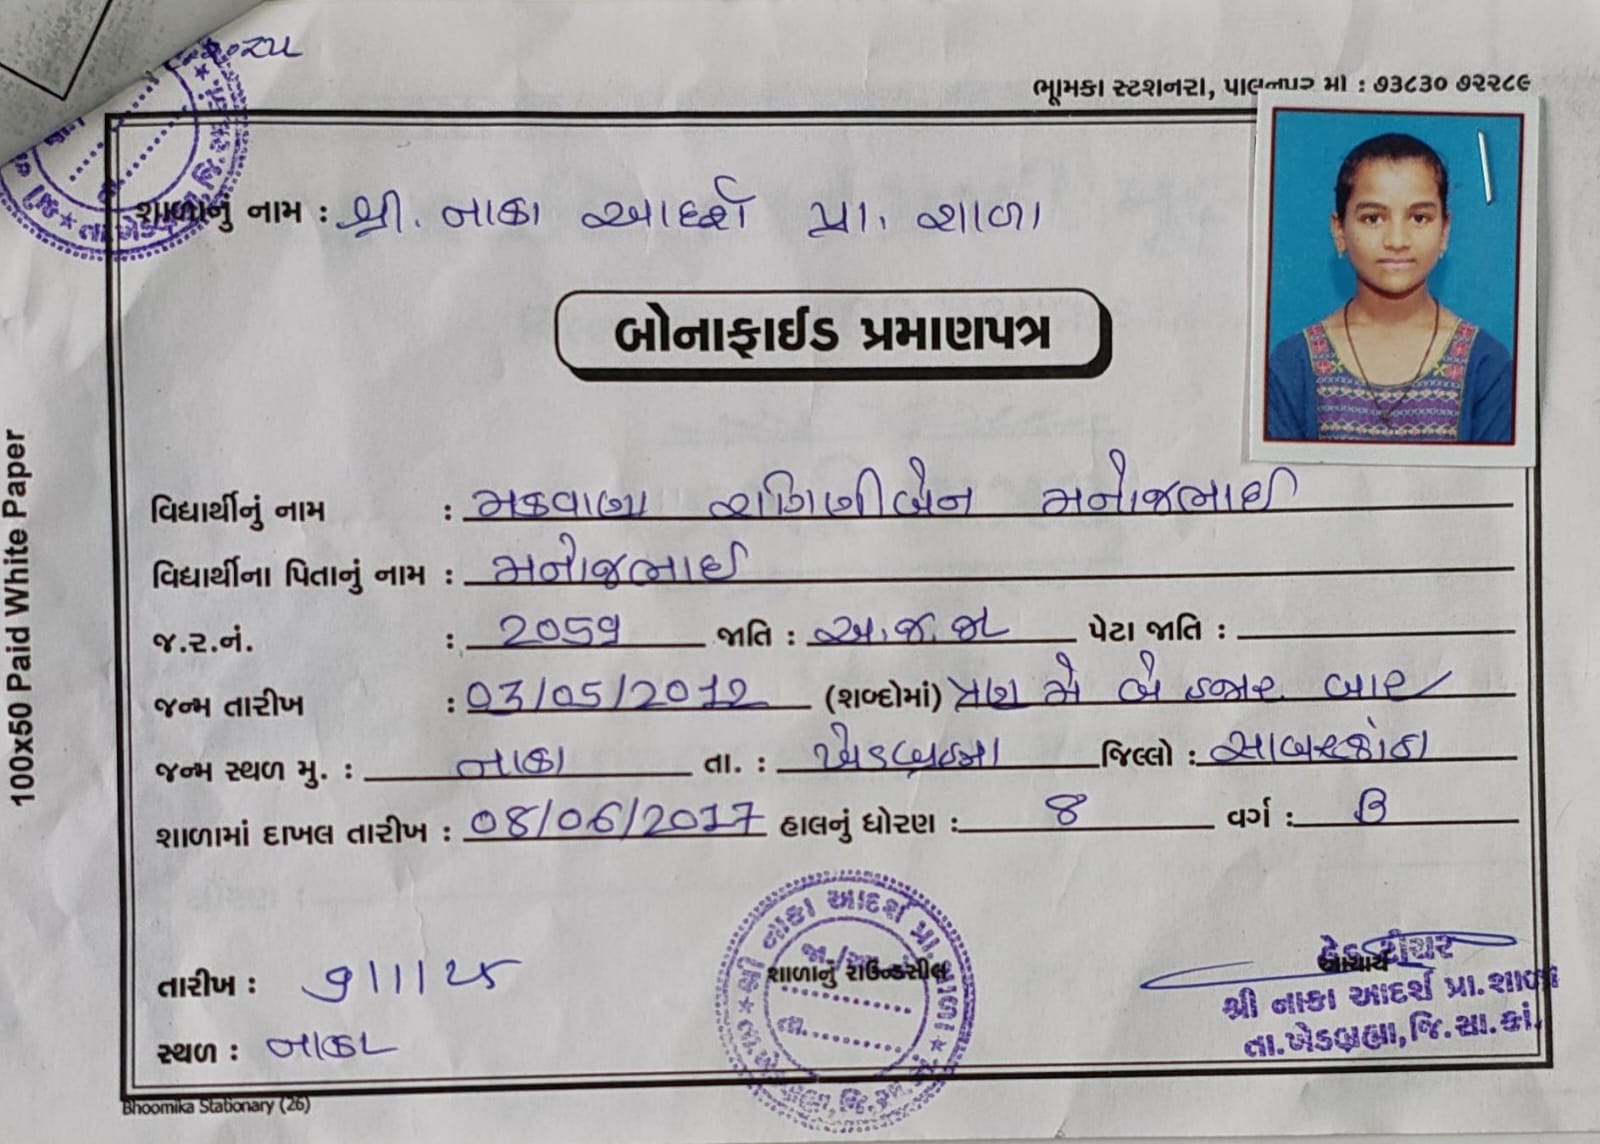 ૨૦૨૫
ભૂમિકા સ્ટેશનરી, પાલનપુર મો : ૭૩૮૩૦ ૭૨૨૮૯
શાળાનું નામ : શ્રી. નાકા આદર્શ પ્રા. શાળા
બોનાફાઈડ પ્રમાણપત્ર
વિદ્યાર્થીનું નામ : મકવાણા રાગિણીબેન મનોજભાઈ
વિદ્યાર્થીના પિતાનું નામ : મનોજભાઈ
જ.ર.નં. : 2059 જાતિ : અ.જ.જા પેટા જાતિ :
જન્મ તારીખ : 03/05/2012 (શબ્દોમાં) ત્રણ મે બે હજાર બાર
જન્મ સ્થળ મુ. : નાકા તા. : ખેડબ્રહ્મા જિલ્લો : સાબરકાંઠા
શાળામાં દાખલ તારીખ : 08/06/2017 હાલનું ધોરણ : 8 વર્ગ : B
શ્રી નાકા આદર્શ પ્રા. શાળા
તારીખ : ૭/૧/૨૫ શાળાનું રાઉન્ડસીલ
હેડ ટીચર
આચાર્ય
શ્રી નાકા આદર્શ પ્રા.શાળા
તા.ખેડબ્રહ્મા,જિ.સા.કાં.
સ્થળ : નાકા
Bhoomika Stationary (26)
100x50 Paid White Paper